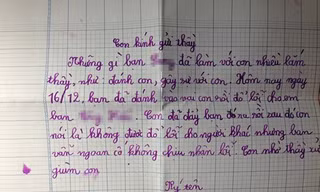 Con kính gửi thầy
Những gì bạn đã làm với con nhiều lắm
thầy, như: đánh con, gây sự với con. Hôm nay ngày
16/12, bạn đã đánh vai con rồi đổ lỗi cho em
bạn Con đã dậy bạn đó rồi sau đó con
nói là không được đổ lỗi cho người khác nhưng bạn
vẫn ngoan cố không chịu nhận lỗi. Con nhờ thầy xử
giùm con
Ký tên